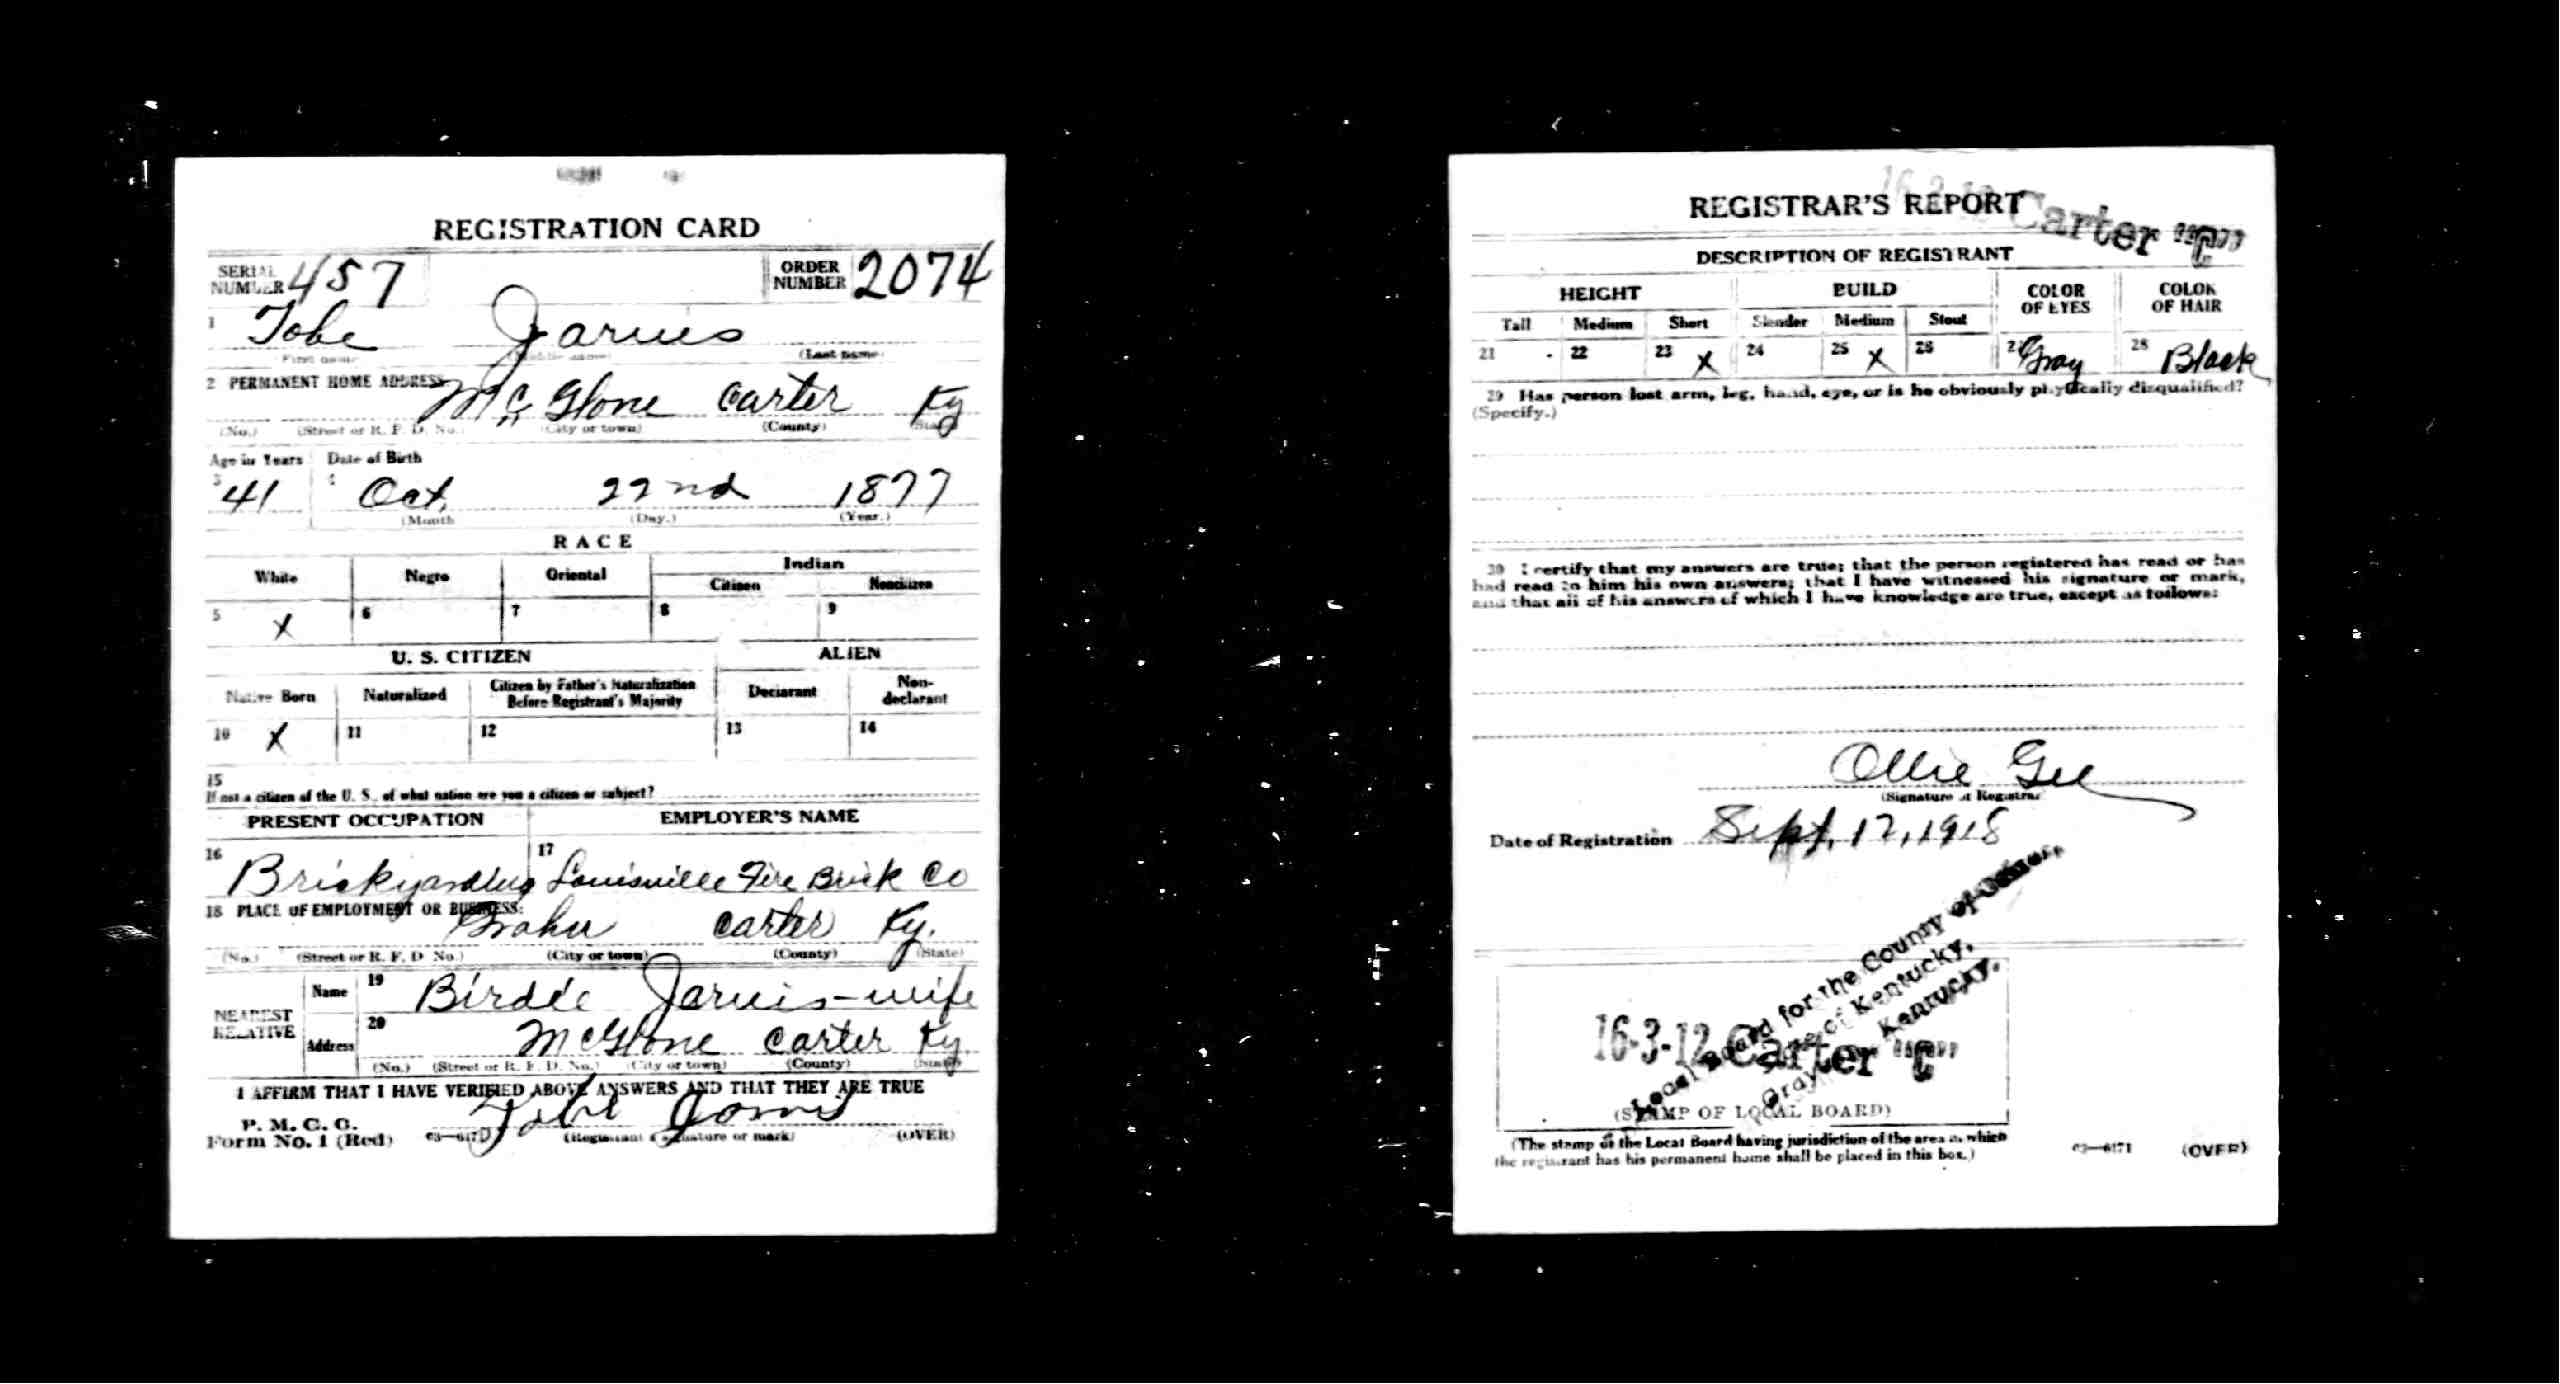 REGISTRATION CARD
SERIAL NUMBER 457 ORDER NUMBER 2074
1 Tobe Jarvis
First name (Middle name) (Last name)
2 PERMANENT HOME ADDRESS
McGlone Carter Ky
(No.) (Street or R. F. D. No.) (City or town) (County) (State)
Age in Years Date of Birth
3 41 4 Oct. 22nd 1877
(Month (Day.) (Year.)
RACE
White Negro Oriental Indian
Citizen Noncitizen
5 X 6 7 8 9
U. S. CITIZEN ALIEN
Native Born Naturalized Citizen by Father's Naturalization Before Registrant's Majority Declarant Non-declarant
10 X 11 12 13 14
15
If not a citizen of the U. S., of what nation are you a citizen or subject?
PRESENT OCCUPATION EMPLOYER'S NAME
16 Brickyarding 17 Louisville Fire Brick Co
18 PLACE OF EMPLOYMENT OR BUSINESS:
Carter Ky.
(No.) (Street or R. F. D No.) (City or town) (County) (State)
NEAREST RELATIVE
Name 19 Birdie Jarvis-wife
Address 20 McGlone Carter Ky
(No.) (Street or R. F. D. No.) (City or town) (County) (State)
I AFFIRM THAT I HAVE VERIFIED ABOVE ANSWERS AND THAT THEY ARE TRUE
P. M. G. O.
Form No. 1 (Red) 03—6171 Tobe Jarvis
(Registrant's signature or mark) (OVER)
REGISTRAR'S REPORT
Carter "C"
DESCRIPTION OF REGISTRANT
HEIGHT BUILD COLOR OF EYES COLOR OF HAIR
Tall Medium Short Slender Medium Stout
21 22 23 X 24 25 X 26 27 Gray 28 Black
29 Has person lost arm, leg, hand, eye, or is he obviously physically disqualified?
(Specify.)
30 I certify that my answers are true; that the person registered has read or has
had read to him his own answers; that I have witnessed his signature or mark,
and that all of his answers of which I have knowledge are true, except as follows:
Ollie Gee
(Signature of Registrar
Date of Registration Sept. 12, 1918
Local Board for the County of Carter,
State of Kentucky,
Kentucky.
16-3-12 Carter "C"
(STAMP OF LOCAL BOARD)
(The stamp of the Local Board having jurisdiction of the area in which
the registrant has his permanent home shall be placed in this box.)
03—6171 (OVER)